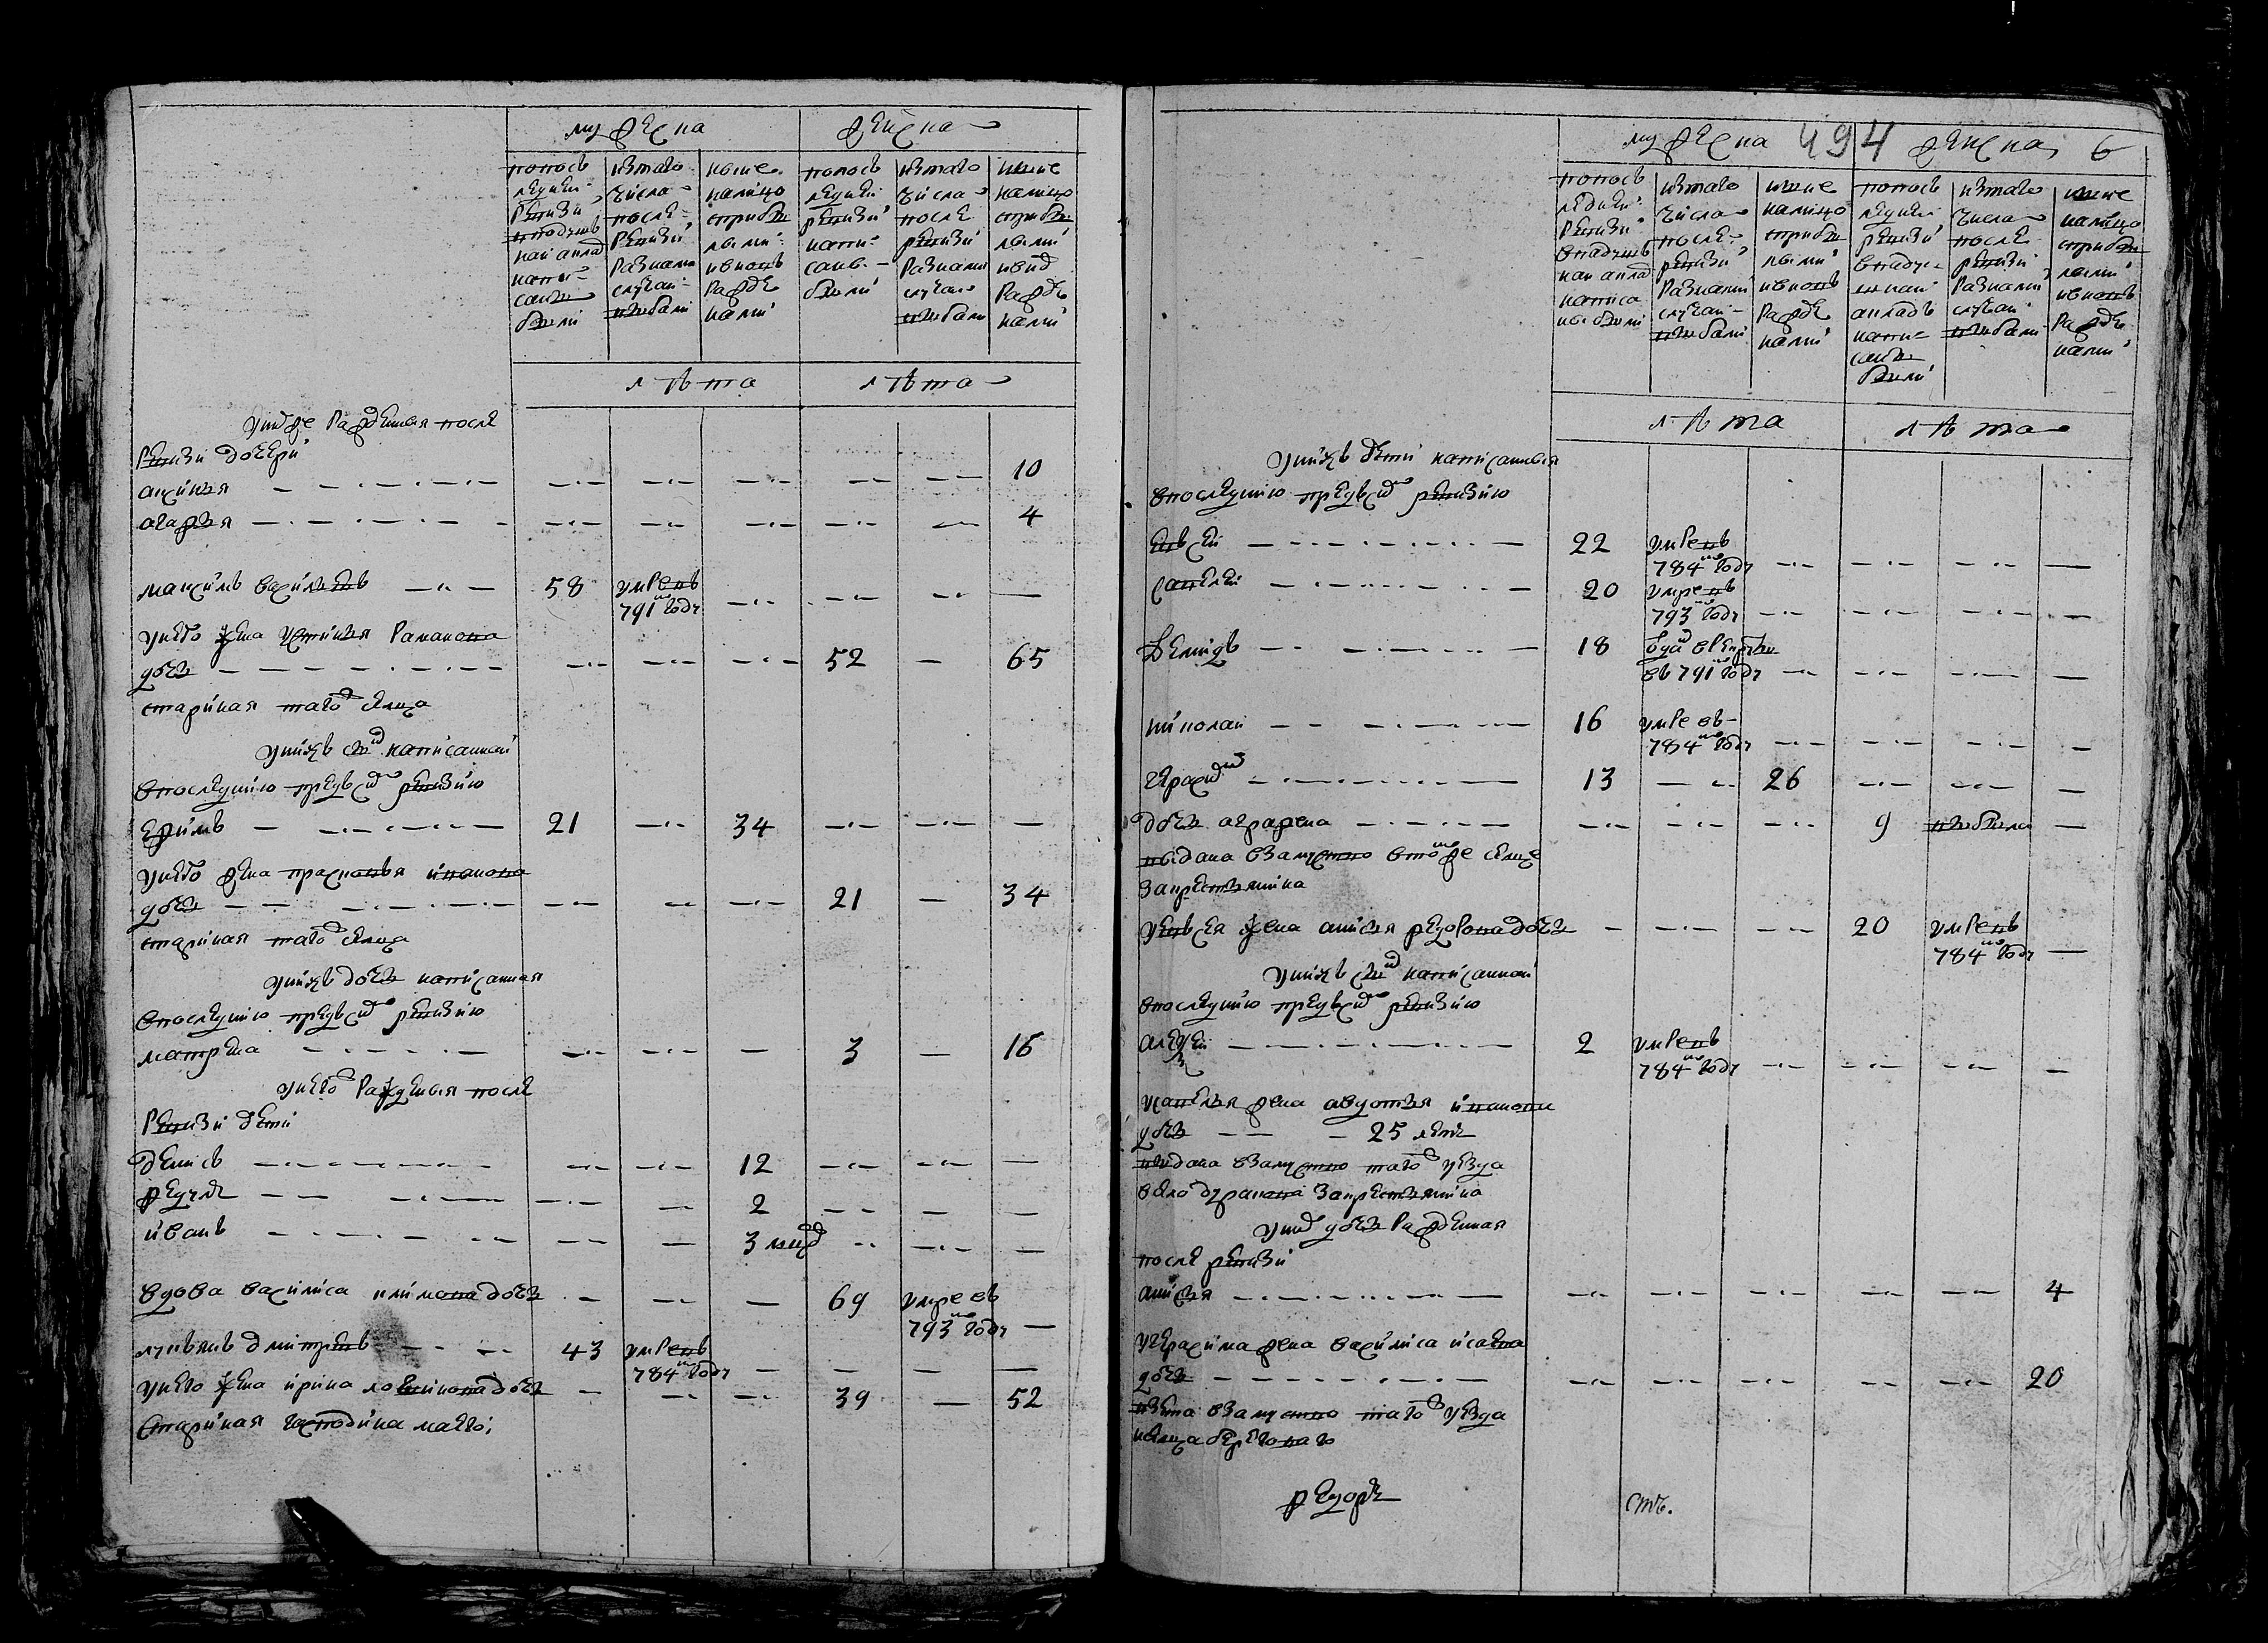 мужеска
женска
по последней ревизии в подушной оклад написаны были
из того числа после ревизии разными случаями выбыли
ныне налицо с прибылыми и вновь рожденными
по последней ревизии написаны были
из того числа после ревизии разными случаями выбыли
ныне налицо с прибылыми и вновь рожденными
лѣта
лѣта
у них же рожденныя после
ревизи дочери
аксинья 10
4
максимъ василевъ 58 умре въ
791м году
у него жена устинья романова
дочь 52 65
старинная того ж селца
у них сын написанной
в последнюю пред сим ревизию
ефимъ 21 34
у него жена прасковья иванова
дочь 21 34
старинная того ж селца
у них дочь написанная
в последнюю пред сим ревизию
матрена 3 16
у него ж рожденныя после
ревизи дети
денисъ 12
федоръ 2
иванъ 3 нед
вдова василиса климова дочь 69 умре въ
793м году
лукьянъ дмитревъ 43 умре въ
784м году
у него жена ирина логвинова дочь 39 52
старинная господина моего
мужеска 494 женска 6
по последней ревизии в подушной оклад написаны были
из того числа после ревизии разными случаями выбыли
ныне налицо с прибылыми и вновь рожденными
по последней ревизии в подушной окладъ написаны были
из того числа после ревизии разными случаями выбыли
ныне налицо с прибылыми и вновь рожденными
лѣта
лѣта
у них дети написанныя
в последнюю пред сим ревизию
евсей 22 умре въ
784м году
савелей 20 умре въ
793м году
демидъ 18
въ 791м году
николай 16 умре въ
784м году
герасим 13 26
дочь аграфена 9 выбыла
выдана в замуство в том же селце
за крестьянина
у евсея жена анисья федорова дочь 20 умре въ
784м году
у них сын написанной
в последнюю пред сим ревизию
алексей 2 умре въ
784м году
у савелья жена авдотья иванова
дочь 25 летъ
выдана в замуство того ж уезда
за крестьянина
у них дочь рожденная
после ревизи
анисья 4
у герасима жена василиса исаева
дочь 20
взята в замуство того ж уезда
федоръ ст.